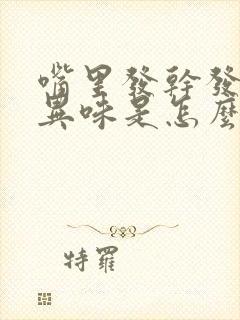 嘴里發幹發
異味是怎麽
特羅